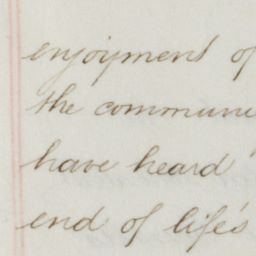 enjoyment of
the commun
have heard
end of life's